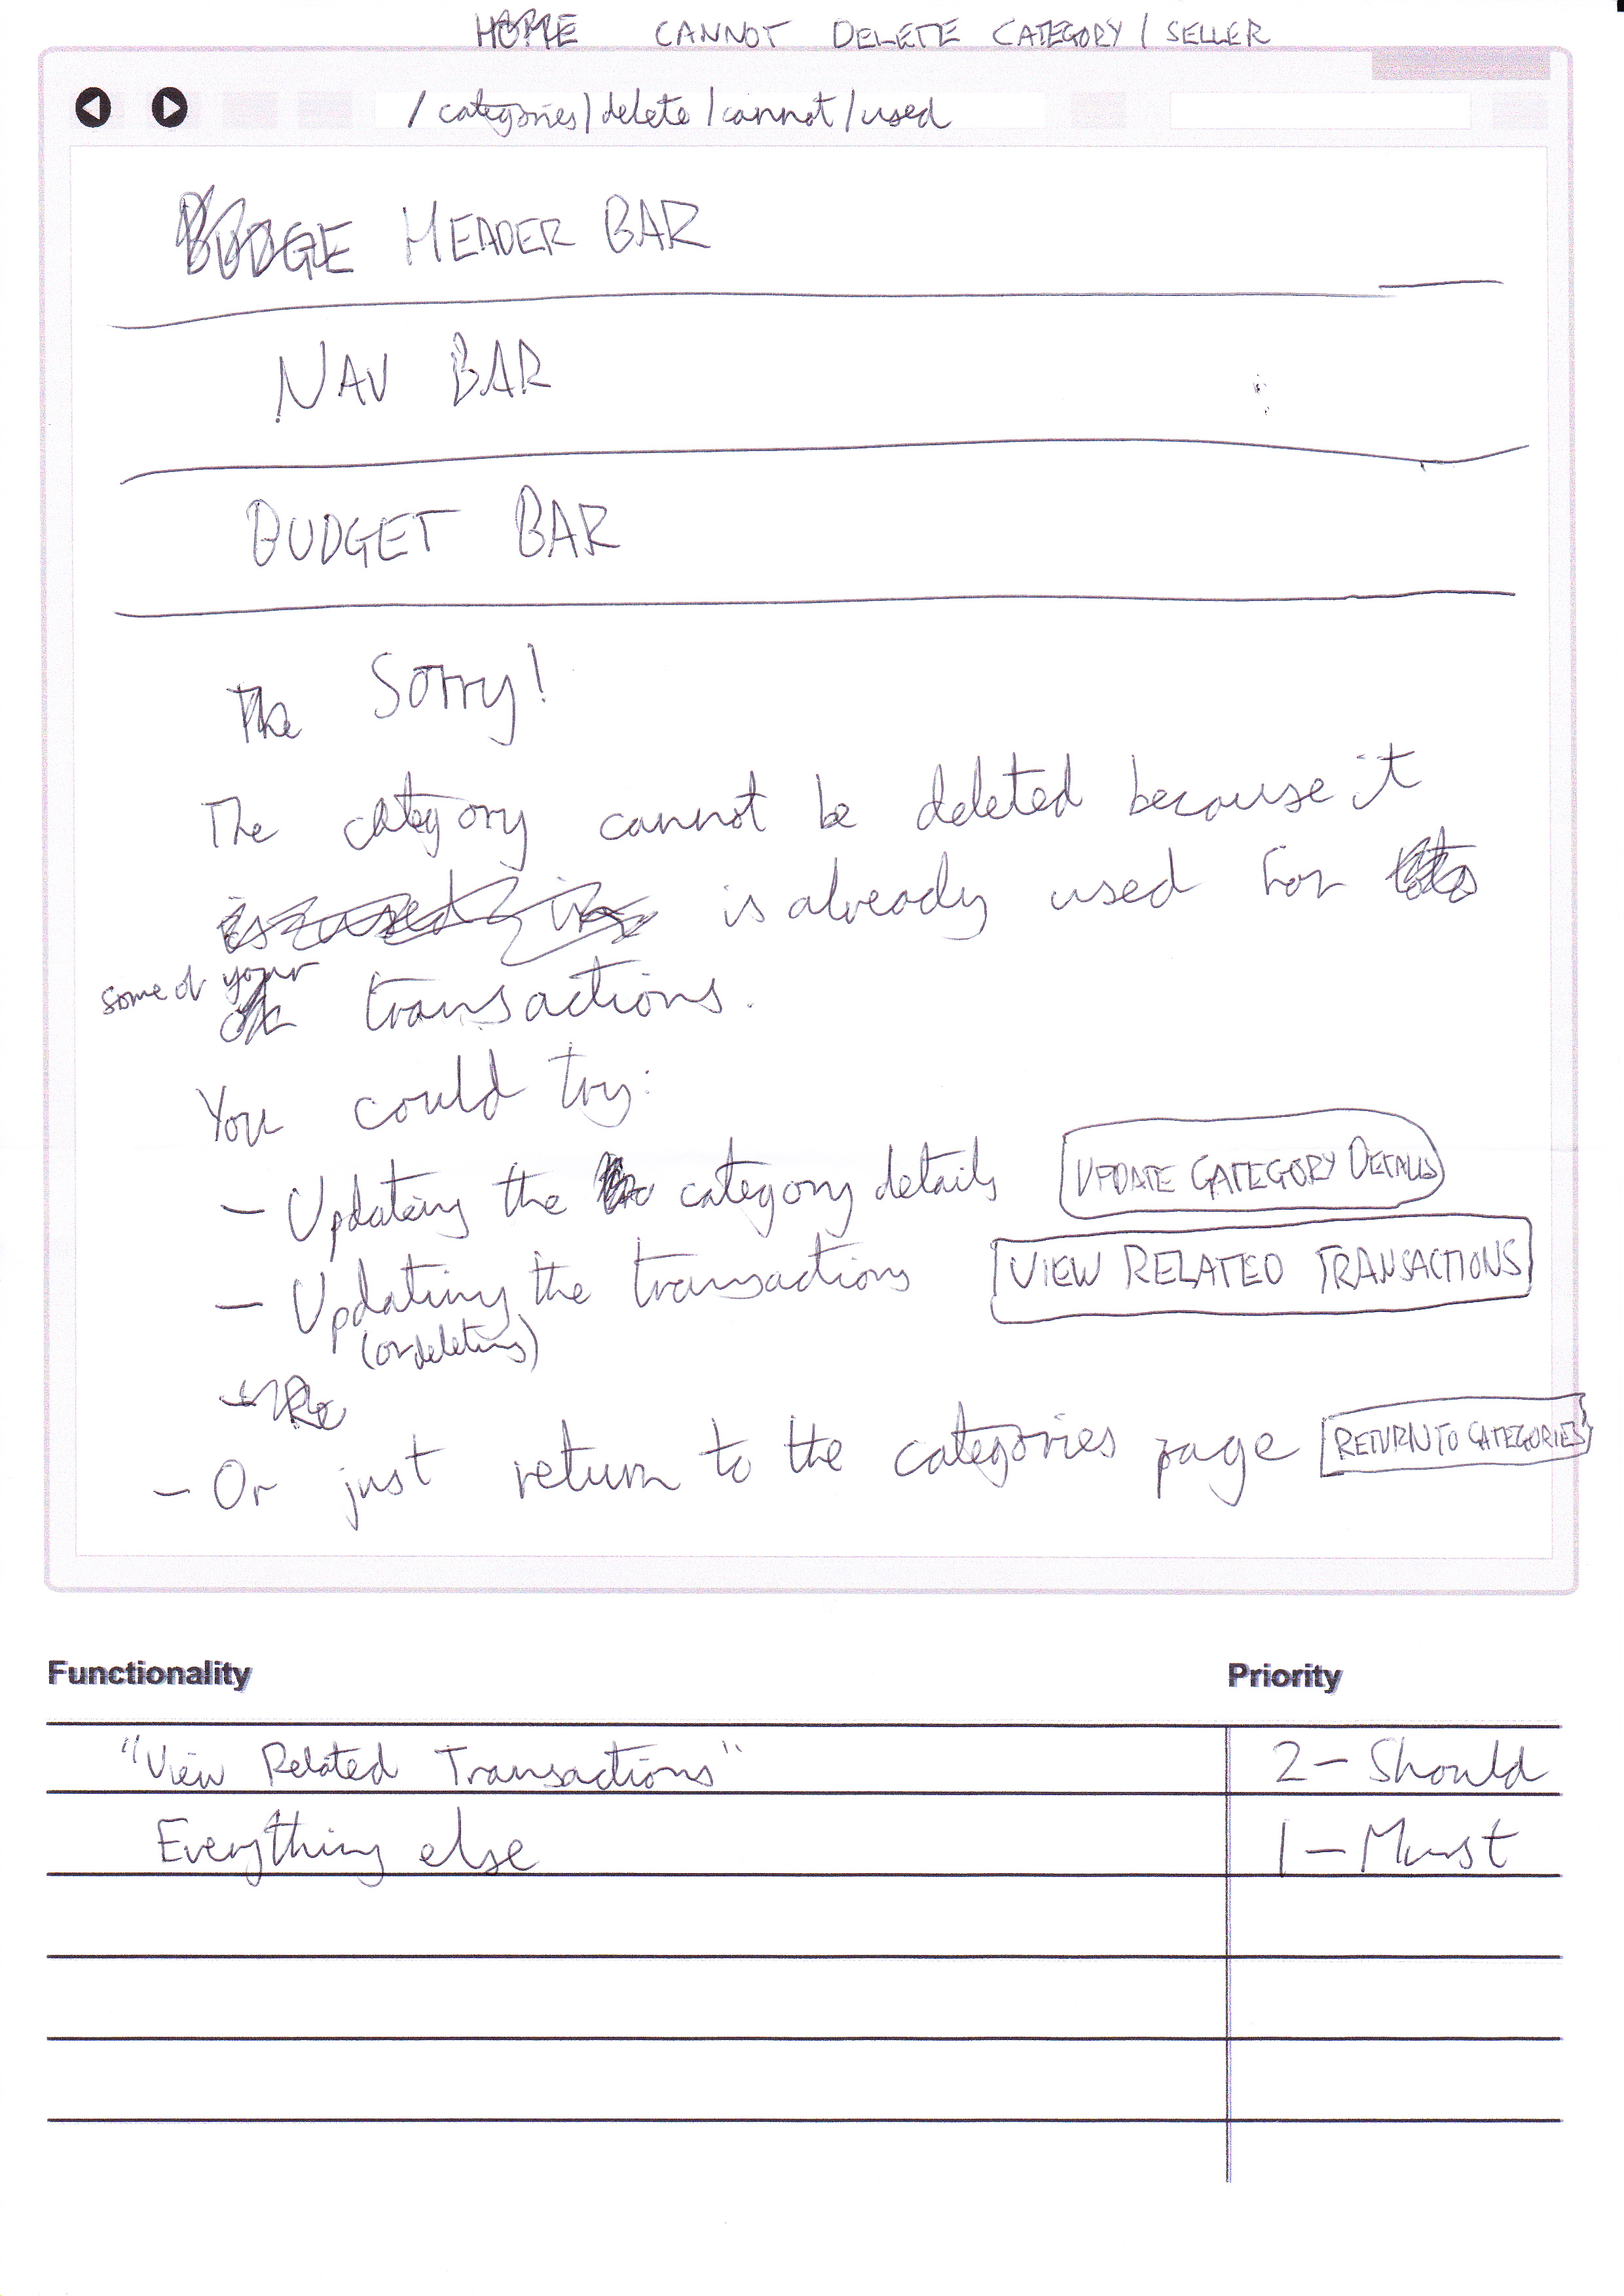 HOME CANNOT DELETE CATEGORY / SELLER
/categories/delete/cannot/used
BUDGE HEADER BAR
NAV BAR
BUDGET BAR
The Sorry!
The category cannot be deleted because it
is used in is already used for
some of your transactions.
You could try:
- Updating the category details UPDATE CATEGORY DETAILS
- Updating the transactions VIEW RELATED TRANSACTIONS
(or deleting)
- Or just return to the categories page RETURN TO CATEGORIES
Functionality Priority
"View Related Transactions" 2 - Should
Everything else 1 - Must